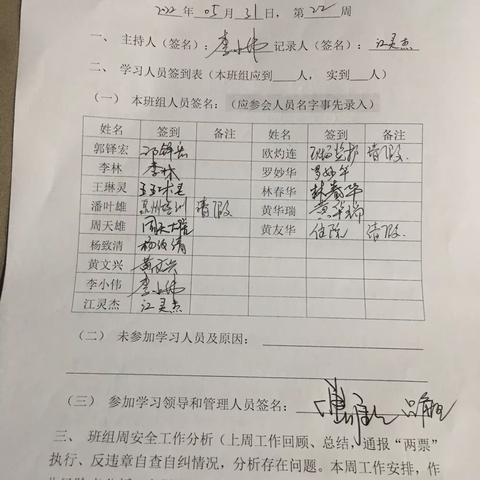 2022 年 05 月 31 日，第 22 周
一、主持人（签名）：李小伟 记录人（签名）：江灵杰
二、学习人员签到表（本班组应到___人，实到___人）
（一）本班组人员签名：（应参会人员名字事先录入）
姓名 签到 备注 姓名 签到 备注
郭铎宏 欧灼连 现场监护 请假
李林 李林 罗妙华 罗妙华
王琳灵 王琳灵 林春华 林春华
潘叶雄 培训 请假 黄华瑞 黄华瑞
周天雄 周天雄 黄友华 住院 请假
杨致清 杨致清
黄文兴 黄文兴
李小伟 李小伟
江灵杰 江灵杰
（二）未参加学习人员及原因：
（三）参加学习领导和管理人员签名：
三、班组周安全工作分析（上周工作回顾、总结，通报“两票”
执行、反违章自查自纠情况，分析存在问题。本周工作安排，作